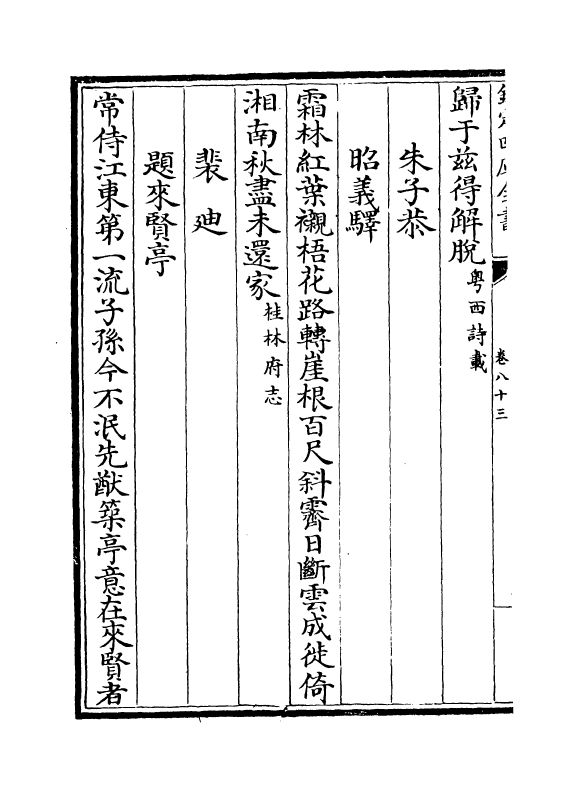 欽定四庫全書
卷八十三
歸于兹得解脫粤西詩載
朱子恭
昭義驛
霜林紅葉襯梧花路轉崖根百尺斜霽日斷雲成徙倚
湘南秋盡未還家桂林府志
裴迪
題來賢亭
常侍江東第一流子孫今不泯先猷築亭意在來賢者